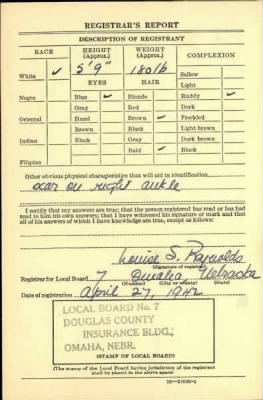 REGISTRAR'S REPORT
DESCRIPTION OF REGISTRANT
RACE HEIGHT (Approx.) WEIGHT (Approx.) COMPLEXION
White ✓ 5' 9" 180 lb Sallow
EYES HAIR Light
Negro Blue ✓ Blonde Ruddy ✓
Gray Red Dark
Oriental Hazel Brown ✓ Freckled
Brown Black Light brown
Indian Black Gray Dark brown
Bald ✓ Black
Filipino
Other obvious physical characteristics that will aid in identification
scar on right ankle
I certify that my answers are true; that the person registered has read or has had
read to him his own answers; that I have witnessed his signature or mark and that
all of his answers of which I have knowledge are true, except as follows:
Louise S. Reynolds
(Signature of registrar)
Registrar for Local Board 7 Omaha, Nebraska
(Number) (City or county) (State)
Date of registration April 27, 1942
LOCAL BOARD No. 7
DOUGLAS COUNTY
INSURANCE BLDG.
OMAHA, NEBR.
(STAMP OF LOCAL BOARD)
(The stamp of the Local Board having jurisdiction of the registrant
shall be placed in the above space)